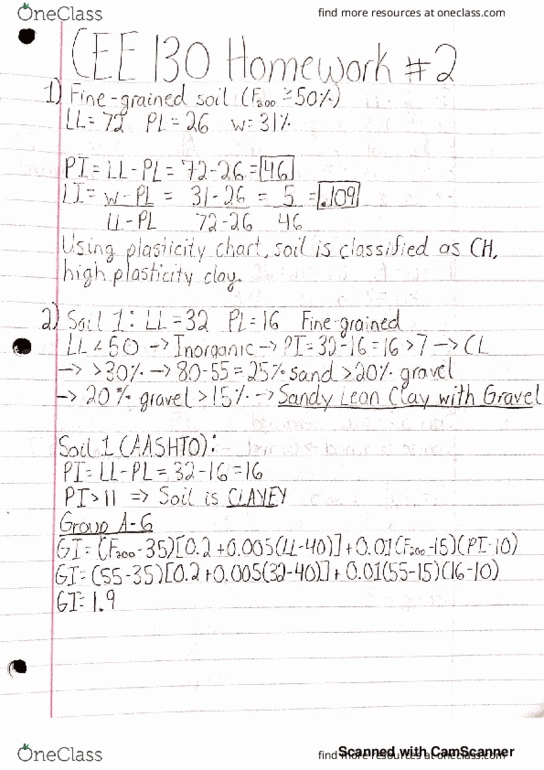 OneClass
find more resources at oneclass.com
CEE 130 Homework #2
1) Fine-grained soil (F₂₀₀ ≥ 50%)
LL = 72 PL = 26 w = 31%
PI = LL - PL = 72 - 26 = 46
LI = w - PL = 31 - 26 = 5 = .109
LL - PL 72 - 26 46
Using plasticity chart, soil is classified as CH,
high plasticity clay.
2) Soil 1: LL = 32 PL = 16 Fine-grained
LL < 50 → Inorganic → PI = 32 - 16 = 16 > 7 → CL
→ >30% → 80-55 = 25% sand > 20% gravel
→ 20% gravel > 15% → Sandy Lean Clay with Gravel
Soil 1 (AASHTO):
PI = LL - PL = 32 - 16 = 16
PI > 11 ⇒ Soil is CLAYEY
Group A-6
GI = (F₂₀₀ - 35)[0.2 + 0.005(LL - 40)] + 0.01(F₂₀₀ - 15)(PI - 10)
GI = (55 - 35)[0.2 + 0.005(32 - 40)] + 0.01(55 - 15)(16 - 10)
GI = 1.9
OneClass
find more resources at oneclass.com
Scanned with CamScanner